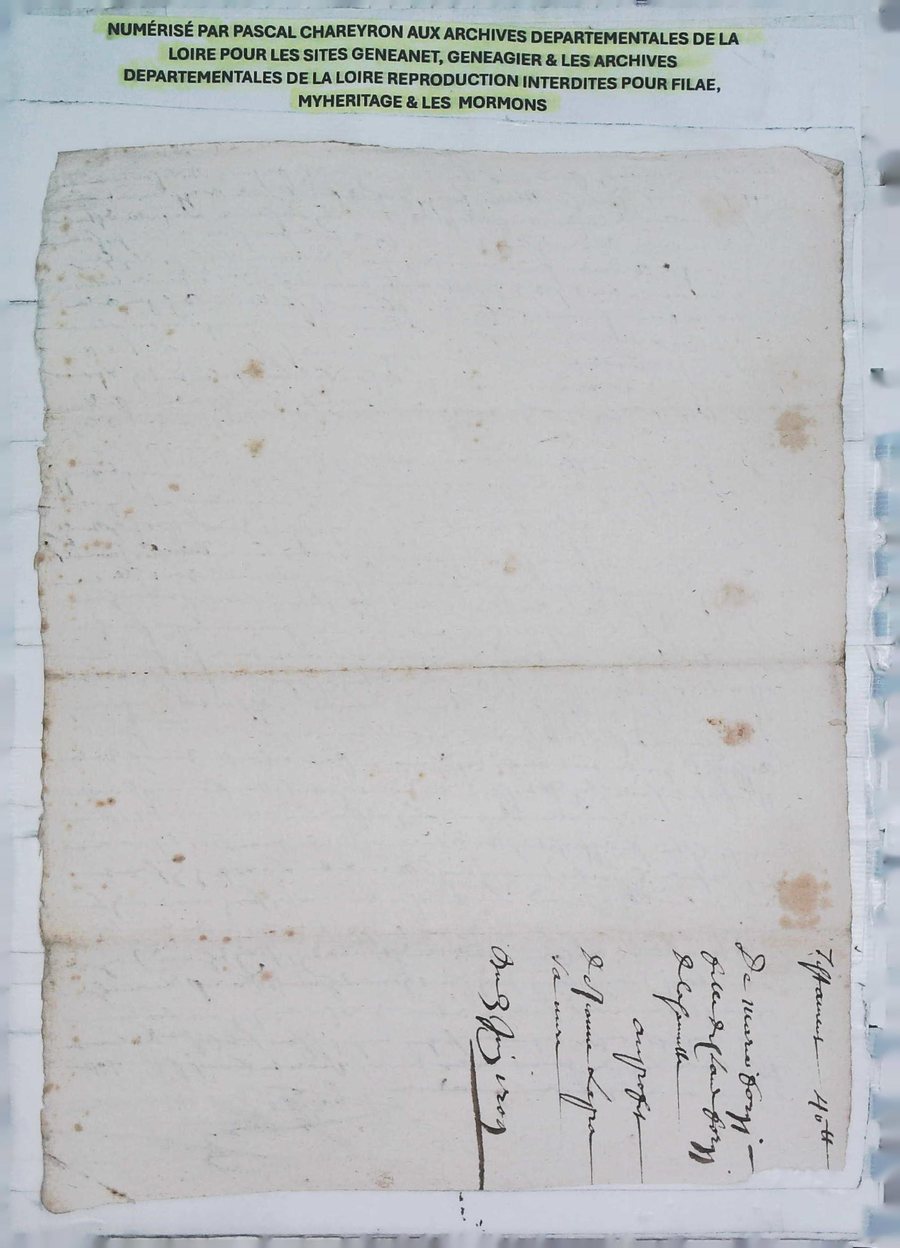 NUMÉRISÉ PAR PASCAL CHAREYRON AUX ARCHIVES DEPARTEMENTALES DE LA
LOIRE POUR LES SITES GENEANET, GENEAGIER & LES ARCHIVES
DEPARTEMENTALES DE LA LOIRE REPRODUCTION INTERDITES POUR FILAE,
MYHERITAGE & LES MORMONS
Testament 40tt
De marie
fille de Claude
au proffit
De Jeanne
sa mere
Du 3